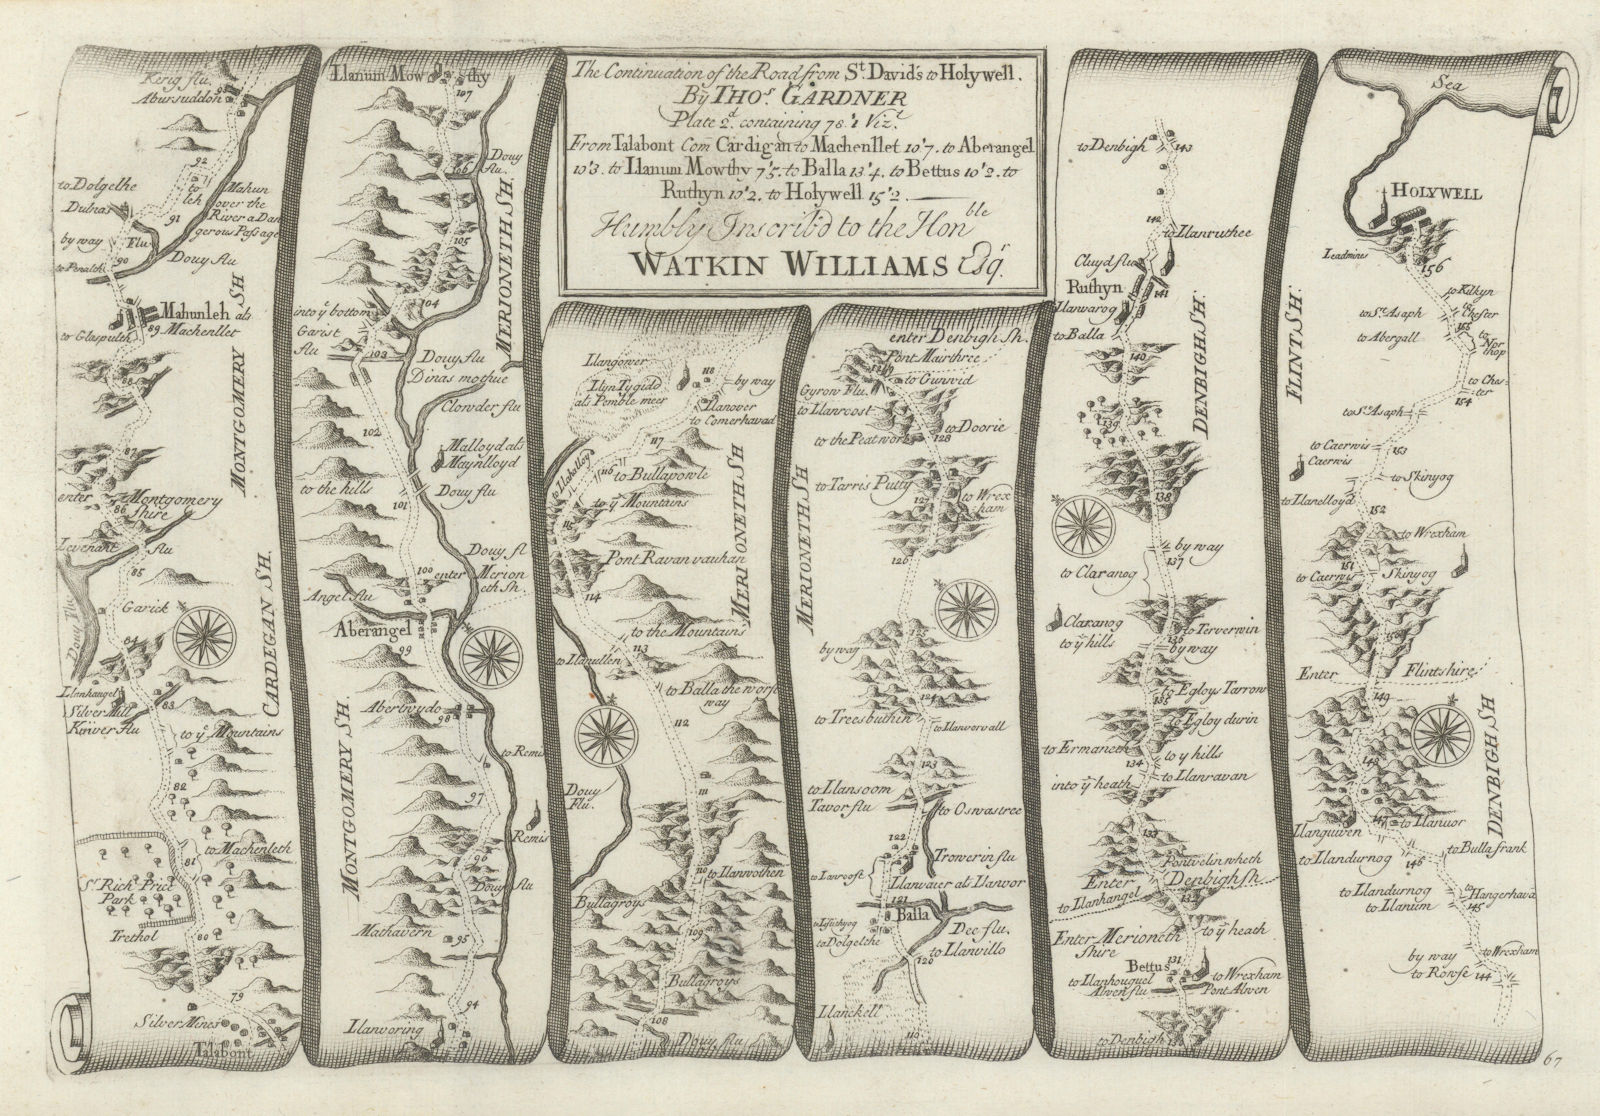 The Continuation of the Road from St. David's to Holywell.
By THOs. GARDNER
Plate 2d. containing 78'1 Vizt.
From Talabont Com Cardigan to Machenllet 10'7. to Aberangel
10'3. to Llanum Mowthy 7'5. to Balla 13'4. to Bettus 10'2. to
Ruthyn 10'2. to Holywell 15'2.
Humbly Inscrib'd to the Honble
WATKIN WILLIAMS Esqr.
Kerig flu
Abursuddon
93
92
to
leh
to Dolgelhe
Mahun
over the
River a Dan
gerous Passage
Dulnas
Flu
91
by way
90
Douy flu
to Penalth
Mahunleh als
Machenllet
89
to Glaspulth
MONTGOMERY SH
88
87
enter Montgomery
shire
86
Levenant flu
85
Douy Flu
Garick
CARDEGAN SH.
84
Llanhangel
Silver Mill
83
Kinver flu
to ye Mountains
82
to Machenleth
81
Sr. Rich. Price
Park
Trethol
80
79
Silver Mines
Talabont
Llanum Mowthy
107
Douy
flu.
106
MERIONETH SH.
105
104
into ye bottom
Garist
flu
103
Douy flu
Dinas mothue
Clowder flu
102
Malloyd als
Maynlloyd
to the hills
Douy flu
101
Douy fl
100
enter Merion
eth Sh.
Angel flu
Aberangel
99
Abertwydo
98
MONTGOMERY SH.
to Remis
97
Remis
96
Douy flu
Mathavern
95
94
Llanvoring
Llangower
118
by way
Llyn Tygidd
als Pemble meer
Llanover
to Comerhavad
117
to Llahelloy
116
to Bullapowle
to ye Mountains
115
MERIONETH SH
Pont Ravan vauhan
114
to the Mountains
to Llanullen
113
to Balla the worse
way
112
Douy
Flu.
111
110
to Llanwothen
Bullagroys
109
Bullagroys
108
Douy flu
enter Denbigh Sh.
Pont Mairthree
129
to Gunvid
Gyrow Flu.
to Llanroost
to Doorie
to the Peatwork
128
MERIONETH SH
to Tarris Putty
127
to Wrex
ham
126
125
by way
124
to Treesbuthin
to Llanvorvall
123
to Llansoom
Tavor flu
to Oswastree
122
Trowerin flu
to Lanroost
Llanvaier als Llanvor
121
Balla
Dee flu.
to Dolgelthe
to Llanvillo
120
Llanckell
119
to Denbigh
143
142
to Llanruthee
Cluyd flu
Ruthyn
141
Llanvarog
to Balla
140
DENBIGH SH.
139
138
by way
137
to Claranog
Claranog
to ye hills
to Terverwin
136
by way
to Egloys Tarrow
135
to Egloy durin
to Ermaneth
to ye hills
134
to Llanravan
into ye heath
133
Pontvelin wheth
Enter Denbigh Sh
to Llanhangel
132
Enter Merioneth
Shire
to ye heath
131
Bettus
to Wrexham
to Llanhouguel
Alwen flu
Pont Alwen
to Denbigh
130
Sea
HOLYWELL
FLINT SH.
Leadmines
156
to Kilkyn
to St. Asaph
to
Chester
155
to Abergall
to
Nor
thop
to Ches-
ter
154
to St. Asaph
to Caerwis
153
Caerwis
to Skinyog
to Llanelloyd
152
to Wrexham
151
to Caerwis
Skinyog
150
Enter Flintshire
149
DENBIGH SH
148
Llanguiven
147
to Llanuor
to Bullafrank
to Llandurnog
146
to
Hangerhava
to Llandurnog
to Llanum
145
by way
to Wrexham
to Rowse
144
67